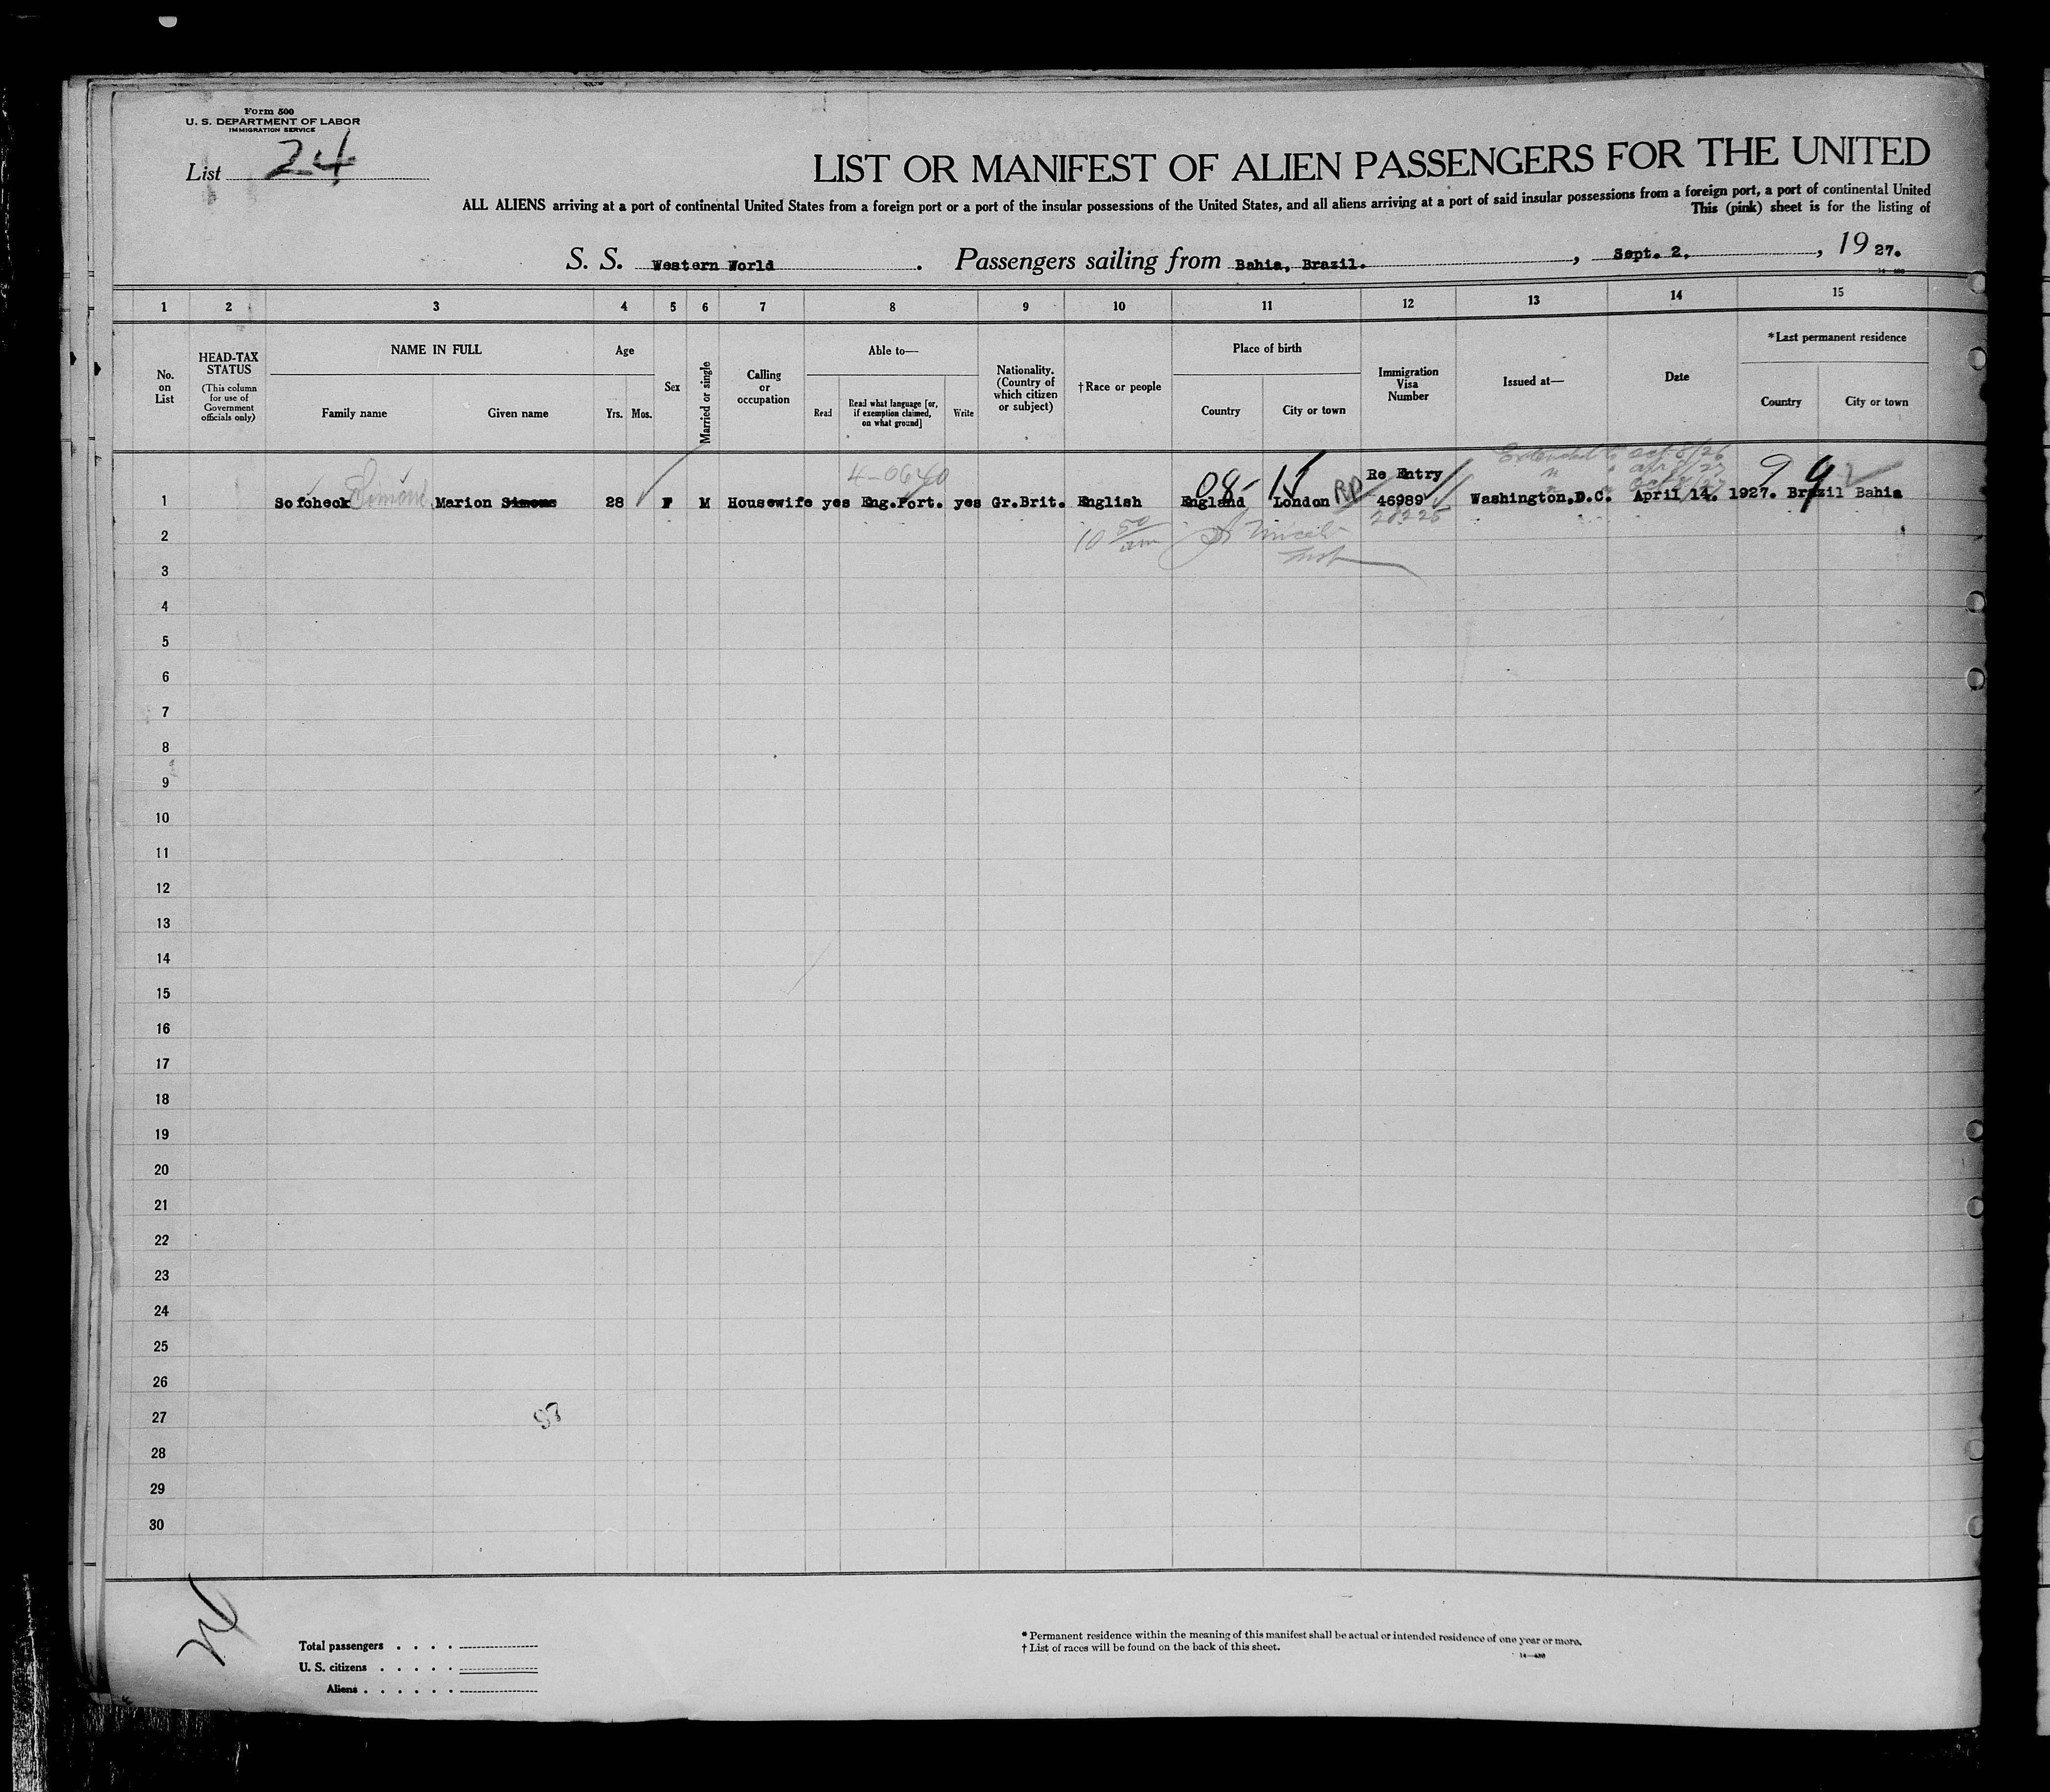 Form 500
U. S. DEPARTMENT OF LABOR
IMMIGRATION SERVICE
List 24
LIST OR MANIFEST OF ALIEN PASSENGERS FOR THE UNITED
ALL ALIENS arriving at a port of continental United States from a foreign port or a port of the insular possessions of the United States, and all aliens arriving at a port of said insular possessions from a foreign port, a port of continental United
This (pink) sheet is for the listing of
S. S. Western World . Passengers sailing from Bahia, Brazil. , Sept. 2, , 19 27.
1 2 3 4 5 6 7 8 9 10 11 12 13 14 15
No. on List
HEAD-TAX STATUS
(This column for use of Government officials only)
NAME IN FULL
Family name
Given name
Age
Yrs.
Mos.
Sex
Married or single
Calling or occupation
Able to—
Read
Read what language [or, if exemption claimed, on what ground]
Write
Nationality. (Country of which citizen or subject)
†Race or people
Place of birth
Country
City or town
Immigration Visa Number
Issued at—
Date
*Last permanent residence
Country
City or town
Extended to Oct 8/26
" " apr 8/27
" " Oct 8/27
4-0640
08- 15
Re Entry
9 9
1 Sofcheck Simons Marion Simons 28 F M Housewife yes Eng.Port. yes Gr.Brit. English England London RP 46989 Washington.D.C. April 14. 1927. Brazil Bahia
28225
10 50 am
2
3
4
5
6
7
8
9
10
11
12
13
14
15
16
17
18
19
20
21
22
23
24
25
26
27
28
29
30
Total passengers . . . .
U. S. citizens . . . . .
Aliens . . . . . .
* Permanent residence within the meaning of this manifest shall be actual or intended residence of one year or more.
† List of races will be found on the back of this sheet.
14—430